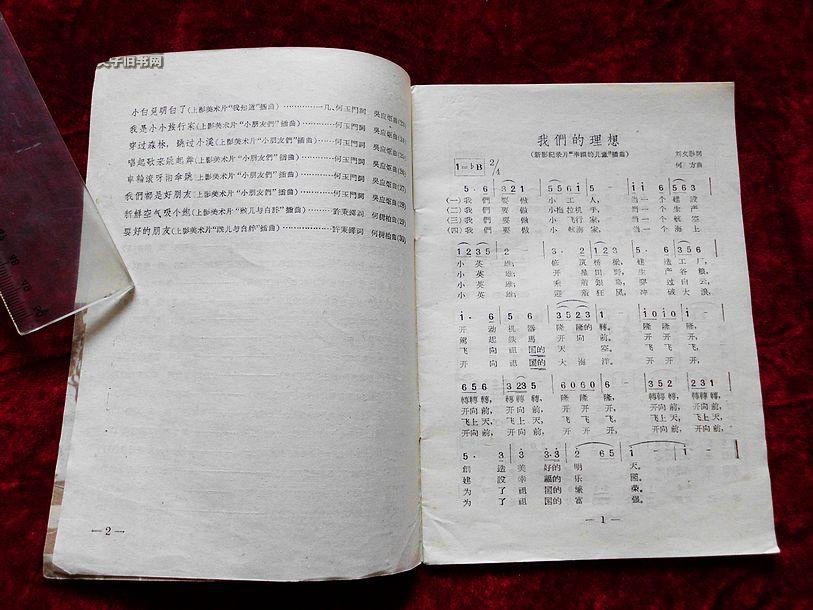 夫子旧书网
小白兎明白了(上影美术片“我知道”插曲)…………一凡、何玉門詞 吳应炬曲(23)
我是小小旅行家(上影美术片“小朋友們”插曲)…………何玉門詞 吳应炬曲
穿过森林，跳过小溪(上影美术片“小朋友們”插曲)……何玉門詞 吳应炬曲
唱起歌来跳起舞(上影美术片“小朋友們”插曲)…………何玉門詞 吳应炬曲
車輪滾呀 (上影美术片“小朋友們”插曲)…………何玉門詞 吳应炬曲
我們都是好朋友(上影美术片“小朋友們”插曲)…………何玉門詞 吳应炬曲(28)
新鮮空气吸个飽(上影美术片 插曲)……許秉鐸詞 何樹柏曲(29)
要好的朋友(上影美术片 插曲)…………許秉鐸詞 何樹柏曲(30)
— 2 —
我們的理想
(新影紀录片“幸福的儿童”插曲)
刘文 詞
何 方曲
1=♭B 2/4
5· 6 3 2 1 5 5 6 1 5 i i i 5 6 3
(一)我 們 要 做 小 工 人， 当 一 个 建 設
(二)我 們 要 做 小拖拉机 手， 当 一 个 生 产
(三)我 們 要 做 小飞行 家， 当 一 个 航 空
(四)我 們 要 做 小航海 家， 当 一 个 海 上
1 2 3 5 2 - 3· 2 1 6 2 4 3 5 6 -
小 英 雄； 修 筑 桥 梁， 建 造 工 厂，
小 英 雄； 开 垦 田 野， 生 产 谷 粮，
小 英 雄； 乘 着 銀 鳥， 穿 过 白 云，
小 英 雄； 迎 着 狂 風， 冲 破 大 浪，
i· 6 5 6 3 5 2 3 1 - i 0 i 0 i i
开 动 机 器 隆 隆的 轉。 隆 隆 隆，
駕 起 鉄 馬 开 向 前。 开 开 开，
飞 向 祖 国的 天 空。 飞 飞 飞，
开 向 祖 国的 大 海 洋。 开 开 开，
6 5 6 3 23 5 6 0 6 0 6 - 3 5 2 2 3 1
轉轉 轉， 轉 轉 轉， 隆 隆 隆， 轉轉 轉， 轉轉 轉，
开向 前， 开 向 前， 开 开 开， 开向 前， 开向 前，
飞上 天， 飞 上 天， 飞 飞 飞， 飞上 天， 飞上 天，
开向 前， 开 向 前， 开 开 开， 开向 前， 开向 前，
5· 3 3 3·3 2 6 5 i - i -
創 造 美 好的 明 天。
建 設 幸 福的 乐 園。
为 了 祖 国的 繁 荣。
为 了 祖 国的 富 强。
— 1 —